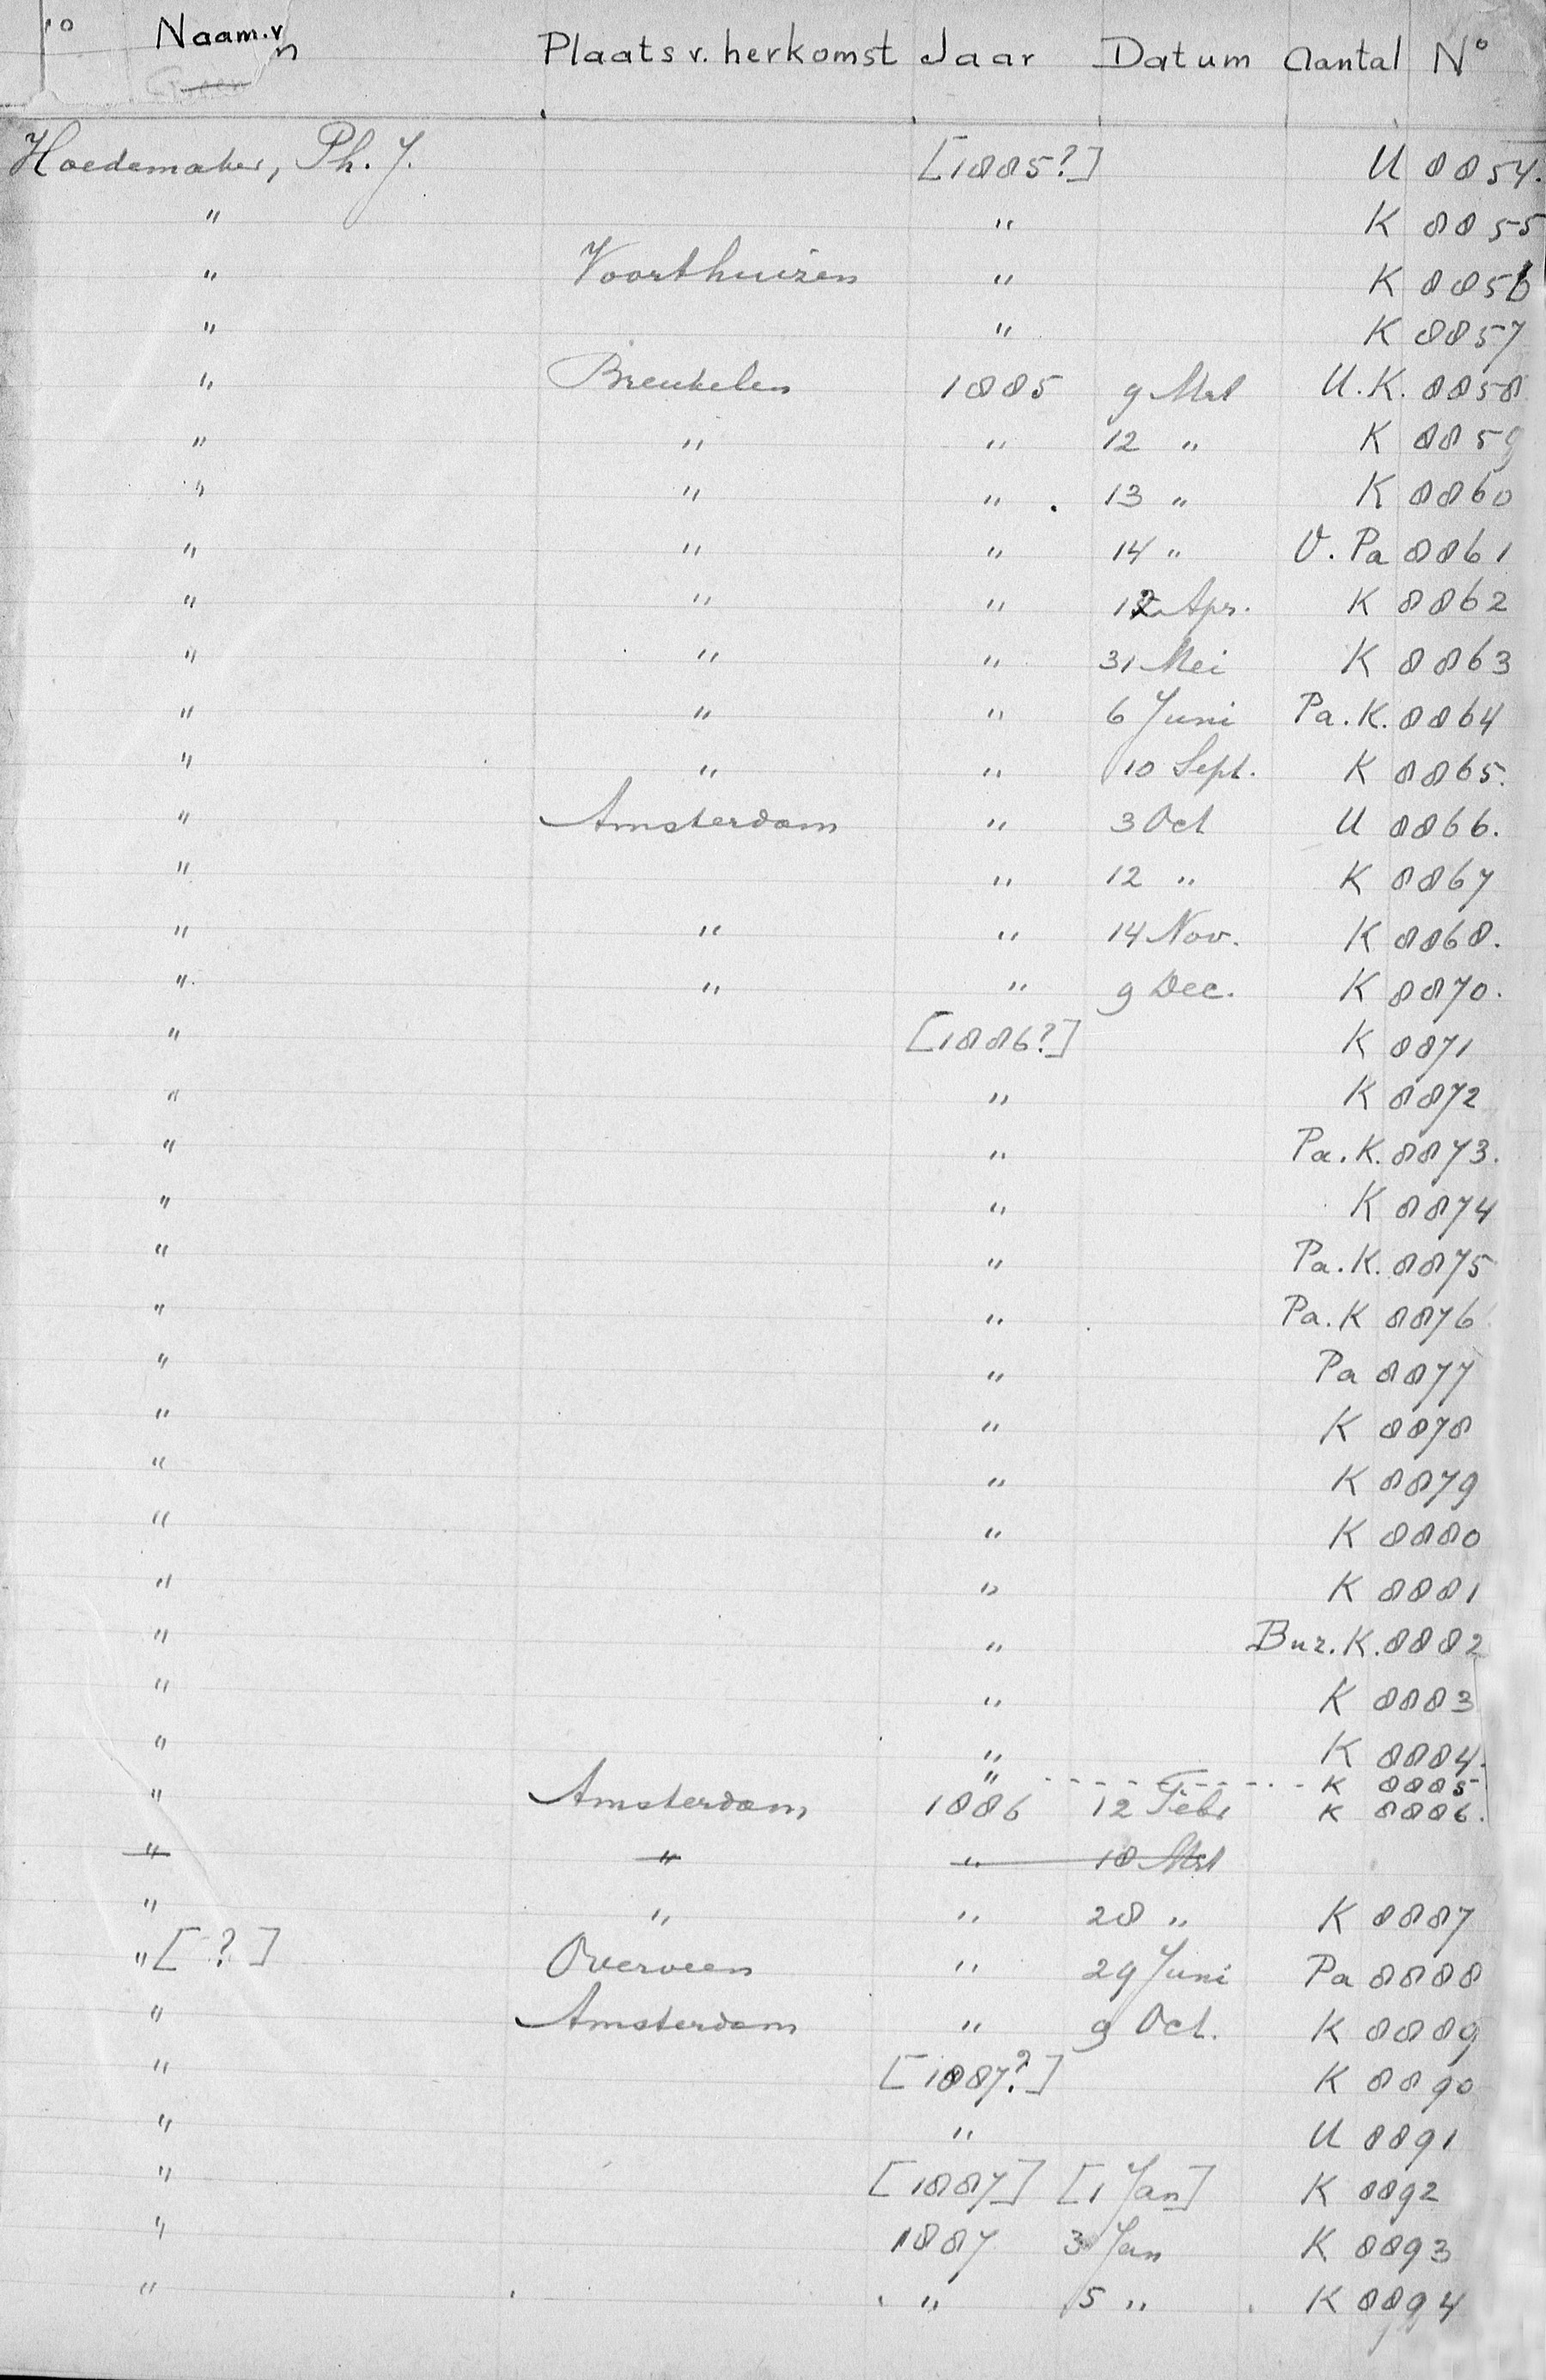 o Naam.v n Plaats v. herkomst Jaar Datum Aantal No
Hoedemaker, Ph. J. [1885?] U 8854.
" " K 8855
" Voorthuizen " K 8856
" " K 8857
" Breukelen 1885 9 Mrt U.K. 8858
" " " 12 " K 8859
" " " 13 " K 8860
" " " 14 " V. Pa 8861
" " " 12 Apr. K 8862
" " " 31 Mei K 8863
" " " 6 Juni Pa. K. 8864
" " " 10 Sept. K 8865.
" Amsterdam " 3 Oct U 8866.
" " 12 " K 8867
" " " 14 Nov. K 8868.
" " " 9 Dec. K 8870.
" [1886?] K 8871
" " K 8872
" " Pa. K. 8873.
" " K 8874
" " Pa. K. 8875
" " Pa. K 8876
" " Pa 8877
" " K 8878
" " K 8879
" " K 8880
" " K 8881
" " Buz. K. 8882
" " K 8883
" " K 8884.
" - - - - - - - - - K 8885
" Amsterdam 1886 12 Febr K 8886.
" " " 18 Mrt
" " " 28 " K 8887
" [ ? ] Overveen " 29 Juni Pa 8888
" Amsterdam " 9 Oct. K 8889
" [1887?] K 8890
" " U 8891
" [1887] [1 Jan] K 8892
" 1887 3 Jan K 8893
" " 5 " K 8894